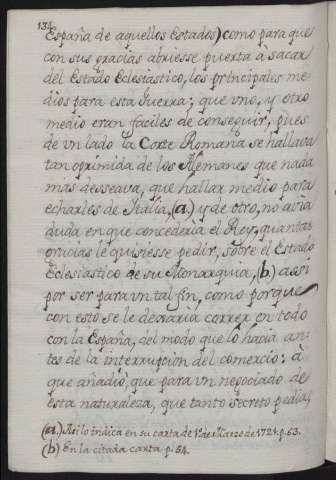 134
España de aquellos Estados) como para que
con sus gracias abriesse puerta à sacar
del Estado Eclesiastico, los principales me
dios para esta Guerra; que uno, y otro
medio eran faciles de conseguir, pues
de vn lado la Corte Romana se hallava
tan oprimida de los Alemanes que nada
mas deseava, que hallar medio para
echarles de Italia, (a) y de otro, no avia
duda en que concederia el Rey, quantas
gracias le quisiesse pedir, sobre el Estado
Eclesiastico de su Monarquia, (b) assi
por ser para vn tal fin, como porque
con esto se le dexaria correr en todo
con la España, del modo que lo hacia an-
tes de la interrupcion del comercio: à
que añadio, que para vn negociado de
esta naturaleza, que tanto secreto pedia,
(a) Assi lo indica en su carta de Marzo de 1721. p. 63.
(b) En la citada carta p. 54.